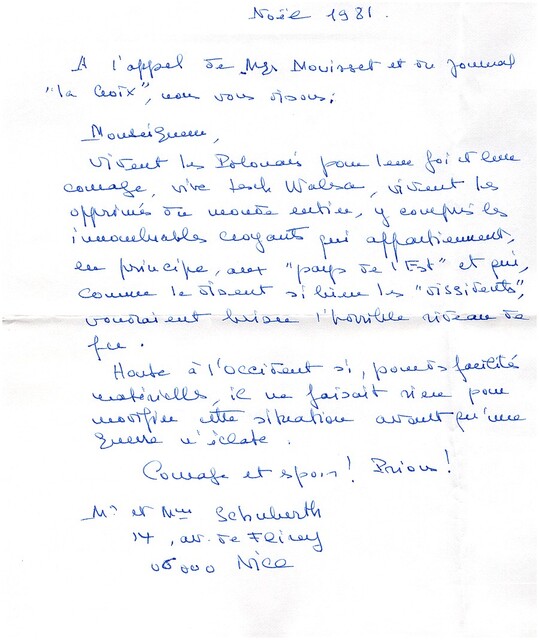 Noël 1981.
A l'appel de Mgr Mouisset et du journal
"la Croix", nous vous disons :
Monseigneur,
vivent les Polonais pour leur foi et leur
courage, vive Lesch Walesa, vivent les
opprimés du monde entier, y compris les
innombrables croyants qui appartiennent,
en principe, aux "pays de l'Est" et qui,
comme le disent si bien les "dissidents",
voudraient briser l'horrible rideau de
fer.
Honte à l'Occident si, pour des facilités
matérielles, il ne faisait rien pour
modifier cette situation avant qu'une
guerre n'éclate.
Courage et espoir ! Prions !
Mr et Mme Schuberth
14, av. de Flirey
06000 Nice